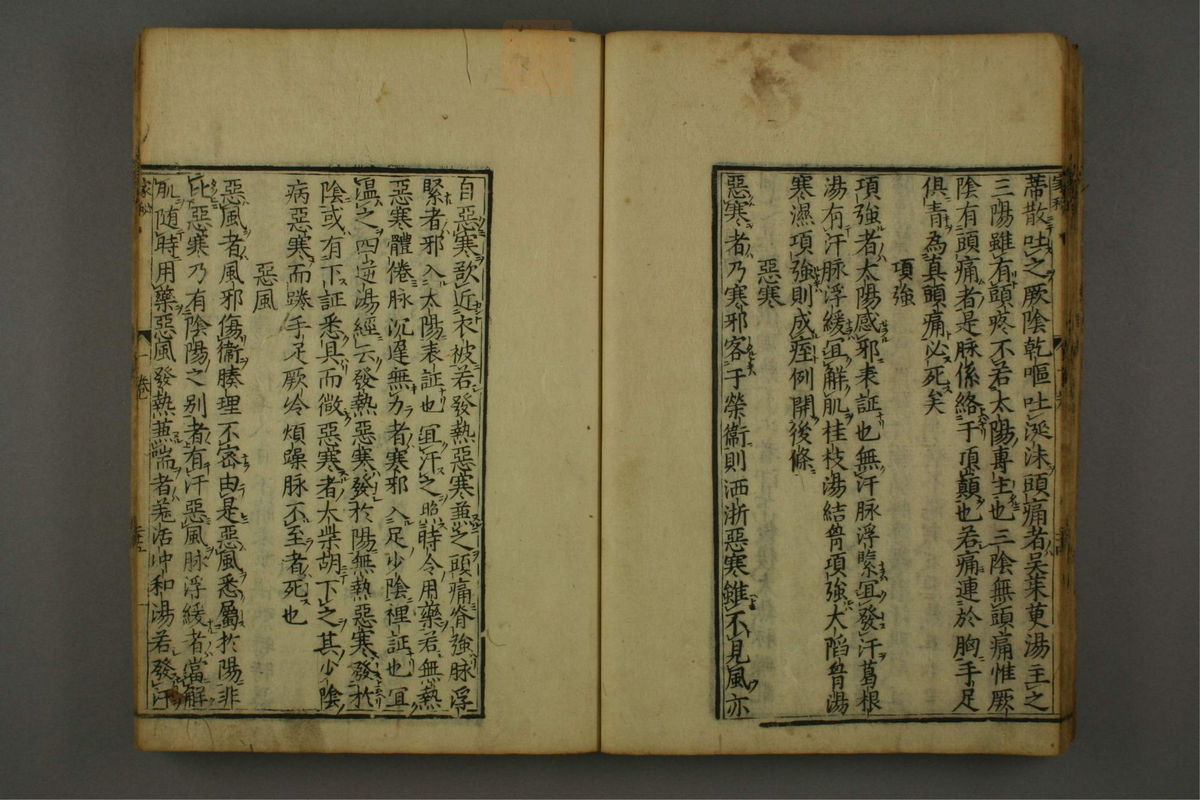 蒂散吐之厥陰乾嘔吐涎沫頭痛者吴茱萸湯主之
三陽雖有頭疼不若太陽專主也三陰無頭痛惟厥
陰有頭痛者是脉係絡于頂顛也若痛連於胸手足
俱青為真頭痛必死矣
項強
項強者太陽感邪表証也無汗脉浮緊宜發汗葛根
湯有汗脉浮緩宜解肌桂枝湯結胷項強大陷胷湯
寒濕項強則成痓例開後條
惡寒
惡寒者乃寒邪客于榮衞則洒淅惡寒雖不見風亦
自惡寒欲近衣被若發熱惡寒兼之頭痛脊強脉浮
緊者邪入太陽表証也宜汗之照時令用藥若無熱
惡寒體倦脉沉遅無力者寒邪入足少陰裡証也宜
温之四逆湯經云發熱惡寒發於陽無熱惡寒發於
陰或有下証悉具而微惡寒者大柴胡下之其少陰
病惡寒而踡手足厥冷煩躁脉不至者死也
惡風
惡風者風邪傷衞腠理不密由是惡風悉屬於陽非
比惡寒乃有陰陽之别者有汗惡風脉浮緩者當解
肌随時用藥惡風發熱兼喘者羗活冲和湯若發汗
一卷